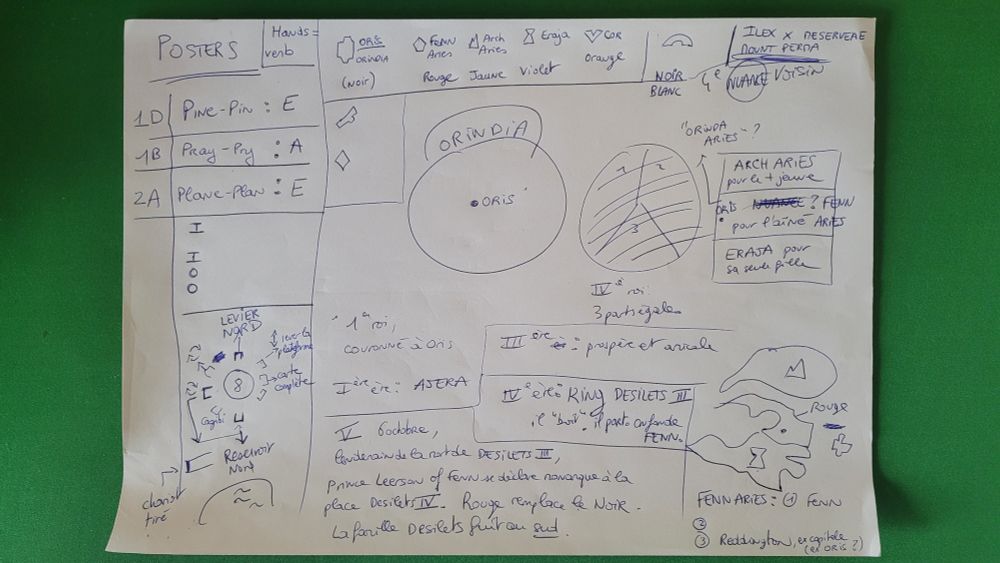 POSTERS
Hands =
verb
ORIS
ORINDIA
(noir)
FENN
Aries
Rouge
Arch
Aries
Jaune
Eraja
Violet
COR
orange
NOIR
BLANC
ILEX x DESEREAE
MOUNT PERDA
4e NUANCE VOISIN
1D Pine-Pin : E
1B Pray-Pry : A
2A Plane-Plan : E
I
I
O
O
ORINDIA
ORIS
1
2
3
"ORINDA
ARIES" ?
ARCH ARIES
pour le + jeune
ORIS
NUANCE ? FENN
pour l'aîné ARIES
ERAJA pour
sa seule fille
IVe roi:
3 parts égales
LEVIER
NORD
lever la
plateforme
carte
complète
8
Cagibi
Reservoir
Nord
chariot
tiré
1er roi,
couronné à Oris
Ière ère : AJERA
IIIère ère : prospère et amicale
IVe ère : King DESILETS III
il "boit". il part. confonde
FENN.
V 6 octobre,
lendemain de la mort de DESILETS III,
prince Leerson of Fenn se déclare monarque à la
place Desilets IV. Rouge remplace le Noir.
La famille DESILETS fuit au sud.
ROUGE
FENN ARIES : 1 FENN
2
3 Reddington, ex capitale
(ex ORIS ?)